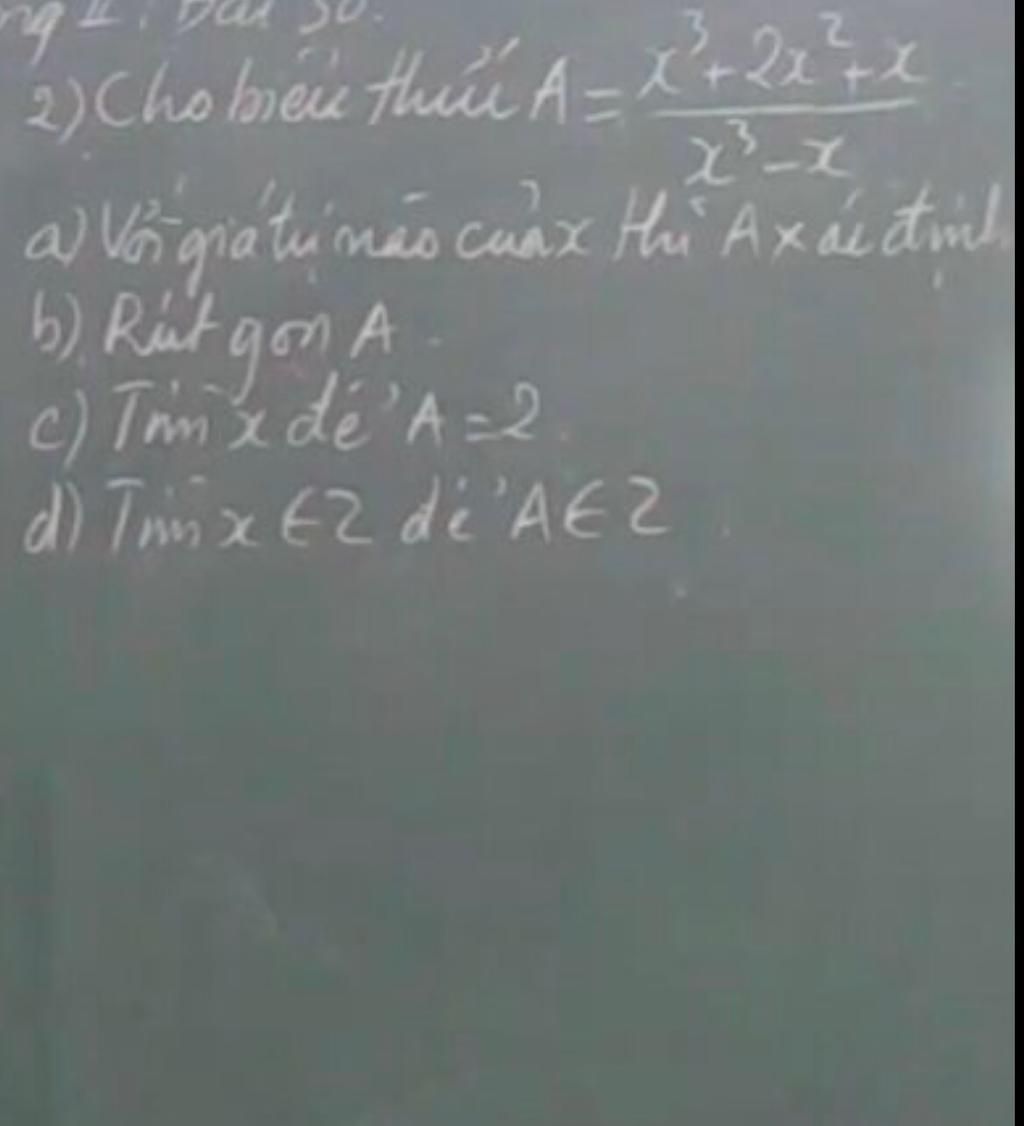 2) Cho biểu thức A = \frac{x^3+2x^2+x}{x^3-x}
a) Với giá trị nào của x thì A xác định
b) Rút gọn A.
c) Tìm x để A = 2.
d) Tìm x ∈ Z để A ∈ Z.